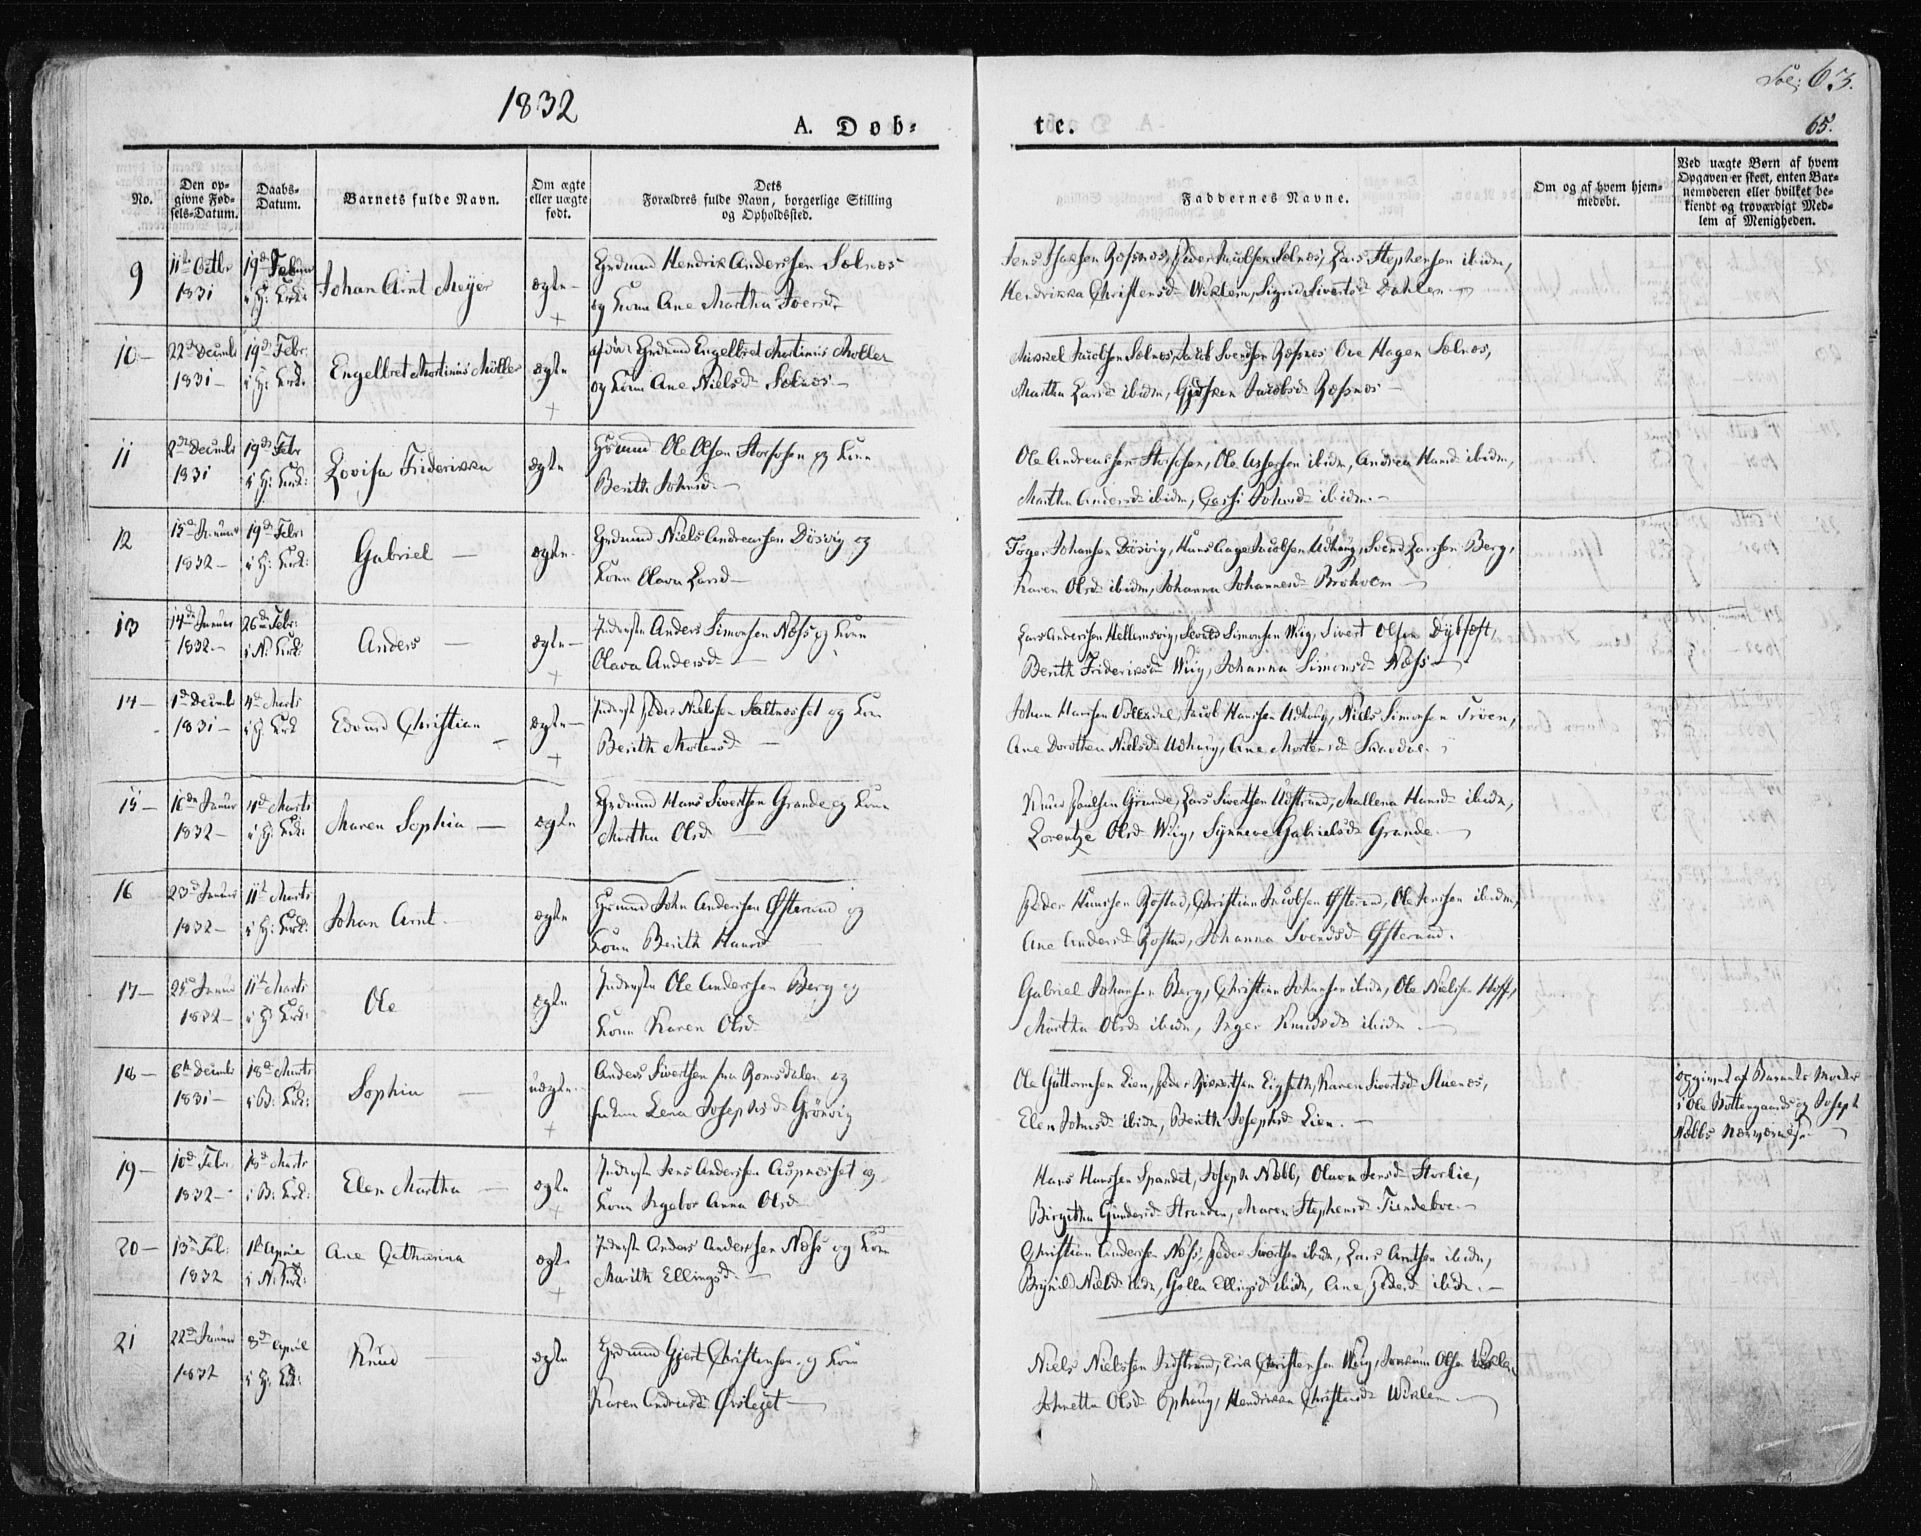 1832
Fol: 63.
A. Døb-
te.
65.
No.
Den op-
givne Fød-
sels-Datum.
Daabs-
Datum.
Barnets fulde Navn.
Om ægte
eller uægte
født.
Dets
Forældres fulde Navn, borgerlige Stilling
og Opholdssted.
Faddernes Navne.
Om og af hvem hjem-
medøbt.
Ved uægte Børn af hvem
Opgaven er skeet, enten Bar-
nemoderen eller hvilket be-
kiendt og troværdigt Med-
lem af Menigheden.
9
11te Octbr
1831
19de Februar
i H: Kirk:
Johan Arnt Meyer
ægte
Grdmnd Hendrik Anderssen Solnæs
og Kone Ane Martha Iversd
Jens Isaksen Røsnæs, Peder Jacobsen Solnæs, Lars Stephensen ibidm,
Hendrikka Christensd Wiklem, Sigrid Sivertsd Dahlen
10
22de Decembr
1831
19de Febr:
i H: Kirk:
Engelbret Martinus Møller
ægte
afdøde Grdmnd Engelbret Martinus Møller
og Kone Ane Nielsd Solnæs
Mikkel Jacobsen Solnæs, Jacob Svendsen Røsnæs, Ove Hagen Solnæs,
Martha Larsd ibidm, Gjdsken Jacobsd Røsnæs
11
2den Decembr
1831
19de Febr
i H: Kirk:
Lovisa Friderikka
ægte
Ole Olsen Storfosen og Kone
Berith Johnsd
Ole Andreassen Storfosen, Ole Assersen ibidm, Andrea Hansd ibidm,
Martha Andersd ibidm, Johnsd ibidm
12
15de Januar
1832
19de Febr
i H: Kirk:
Gabriel
ægte
Grdmnd Niels Andreassen Døsvig og
Kone Olava Larsd
Johansen Døsvig, Hans Aage Jacobsen Udhaug, Svend Larssen Berg,
Karen Olsd ibidm, Johanna Johannesd Brøkvem
13
14de Januar
1832
26de Febr:
i N: Kirk:
Anders
ægte
Inderste Anders Simonsen Næss og Kone
Olava Andersd
Lars Anderssen Hellemsvig, Simonsen Wiig, Sivert Olsen Dybfest,
Berith Frideriksd Wiig, Johanna Simonsd Næss
14
1de Decembr
1831
4de Marts
i H: Kirk
Edvard Christian
ægte
Inderst Peder Nielsen Saltnæsset og Kone
Berith Mortensd
Johan Hanssen Jacob Hanssen Udhaug, Niels Simonsen Troen,
Ane Dorothea Nielsd Udhaug, Ane Mortensd
15
16de Januar
1832
11te Marts
i H: Kirk:
Maren Sophia
ægte
Grdmnd Hans Sivertsen Grande og Kone
Martha Olsd
Knud Paulsen Grande, Lars Sivertsen Udstrand, Mallena Hansd ibidm,
Lorentze Olsd Wiig, Synneve Gabrielsd Grande
16
23de Januar
1832
11te Marts
i H: Kirk:
Johan Arnt
ægte
John Anderssen Østeraad og
Kone Berith Hansd
Peder Hanssen Rostad, Christian Jacobsen Østeraad, Ole Jenssen ibidm,
Ane Andersd Rostad, Johanna Svendsd Østeraad.
17
25de Januar
1832
11te Marts
i H: Kirk:
Ole
ægte
Inderste Ole Anderssen Berg og
Kone Karen Olsd
Gabriel Johansen Berg, Christian Johansen ibidm, Ole Nielsen Hoff,
Martha Olsd ibidm, Inger Knudsd ibidm
18
6te Decembr
1831
18de Marts
i B: Kirk:
Sophia
uægte
Anders Sivertsen fra Romsdalen og
Lena Josephsd Grønvig
Ole Guttormsen Lien, Peder Sivertsen Karen Sivertsd Stuenæs,
Elen Johnsd ibidm, Berith Josephsd Lien
opgivet af Barnets Moder
i Ole Bottengaards og Joseph
Nebbs Nærværelse
19
10de Febr
1832
18de Marts
i B: Kirk:
Elen Martha
ægte
Inderste Jens Anderssen Aspnæsset og
Kone Ingebor Anna Olsd
Hans Hanssen Spandet, Joseph Nebb, Olava Jensd Storlie,
Birgitha Gundersd Stranden, Maren Stephensd Tiendeboe
20
13de Febr
1832
1te April
i N: Kirk:
Ane Catharina
ægte
Inderste Anders Anderssen Næss og Kone
Marith Ellingsd
Christian Anderssen Næss, Peder Sivertsen ibidm, Lars Arntsen ibidm,
Nielsd ibidm, Golla Ellingsd ibidm, Ane Pedersd ibidm
21
22de Januar
1832
8de April
i H: Kirk:
Knud
ægte
Grdmnd Gjert Christensen og Kone
Karen Andreasd Ørsleget
Niels Nielssen Indstrand, Erik Christensen Wiig, Olsen
Johnetta Olsd Ophaug, Hendrikka Christensd Wiklem